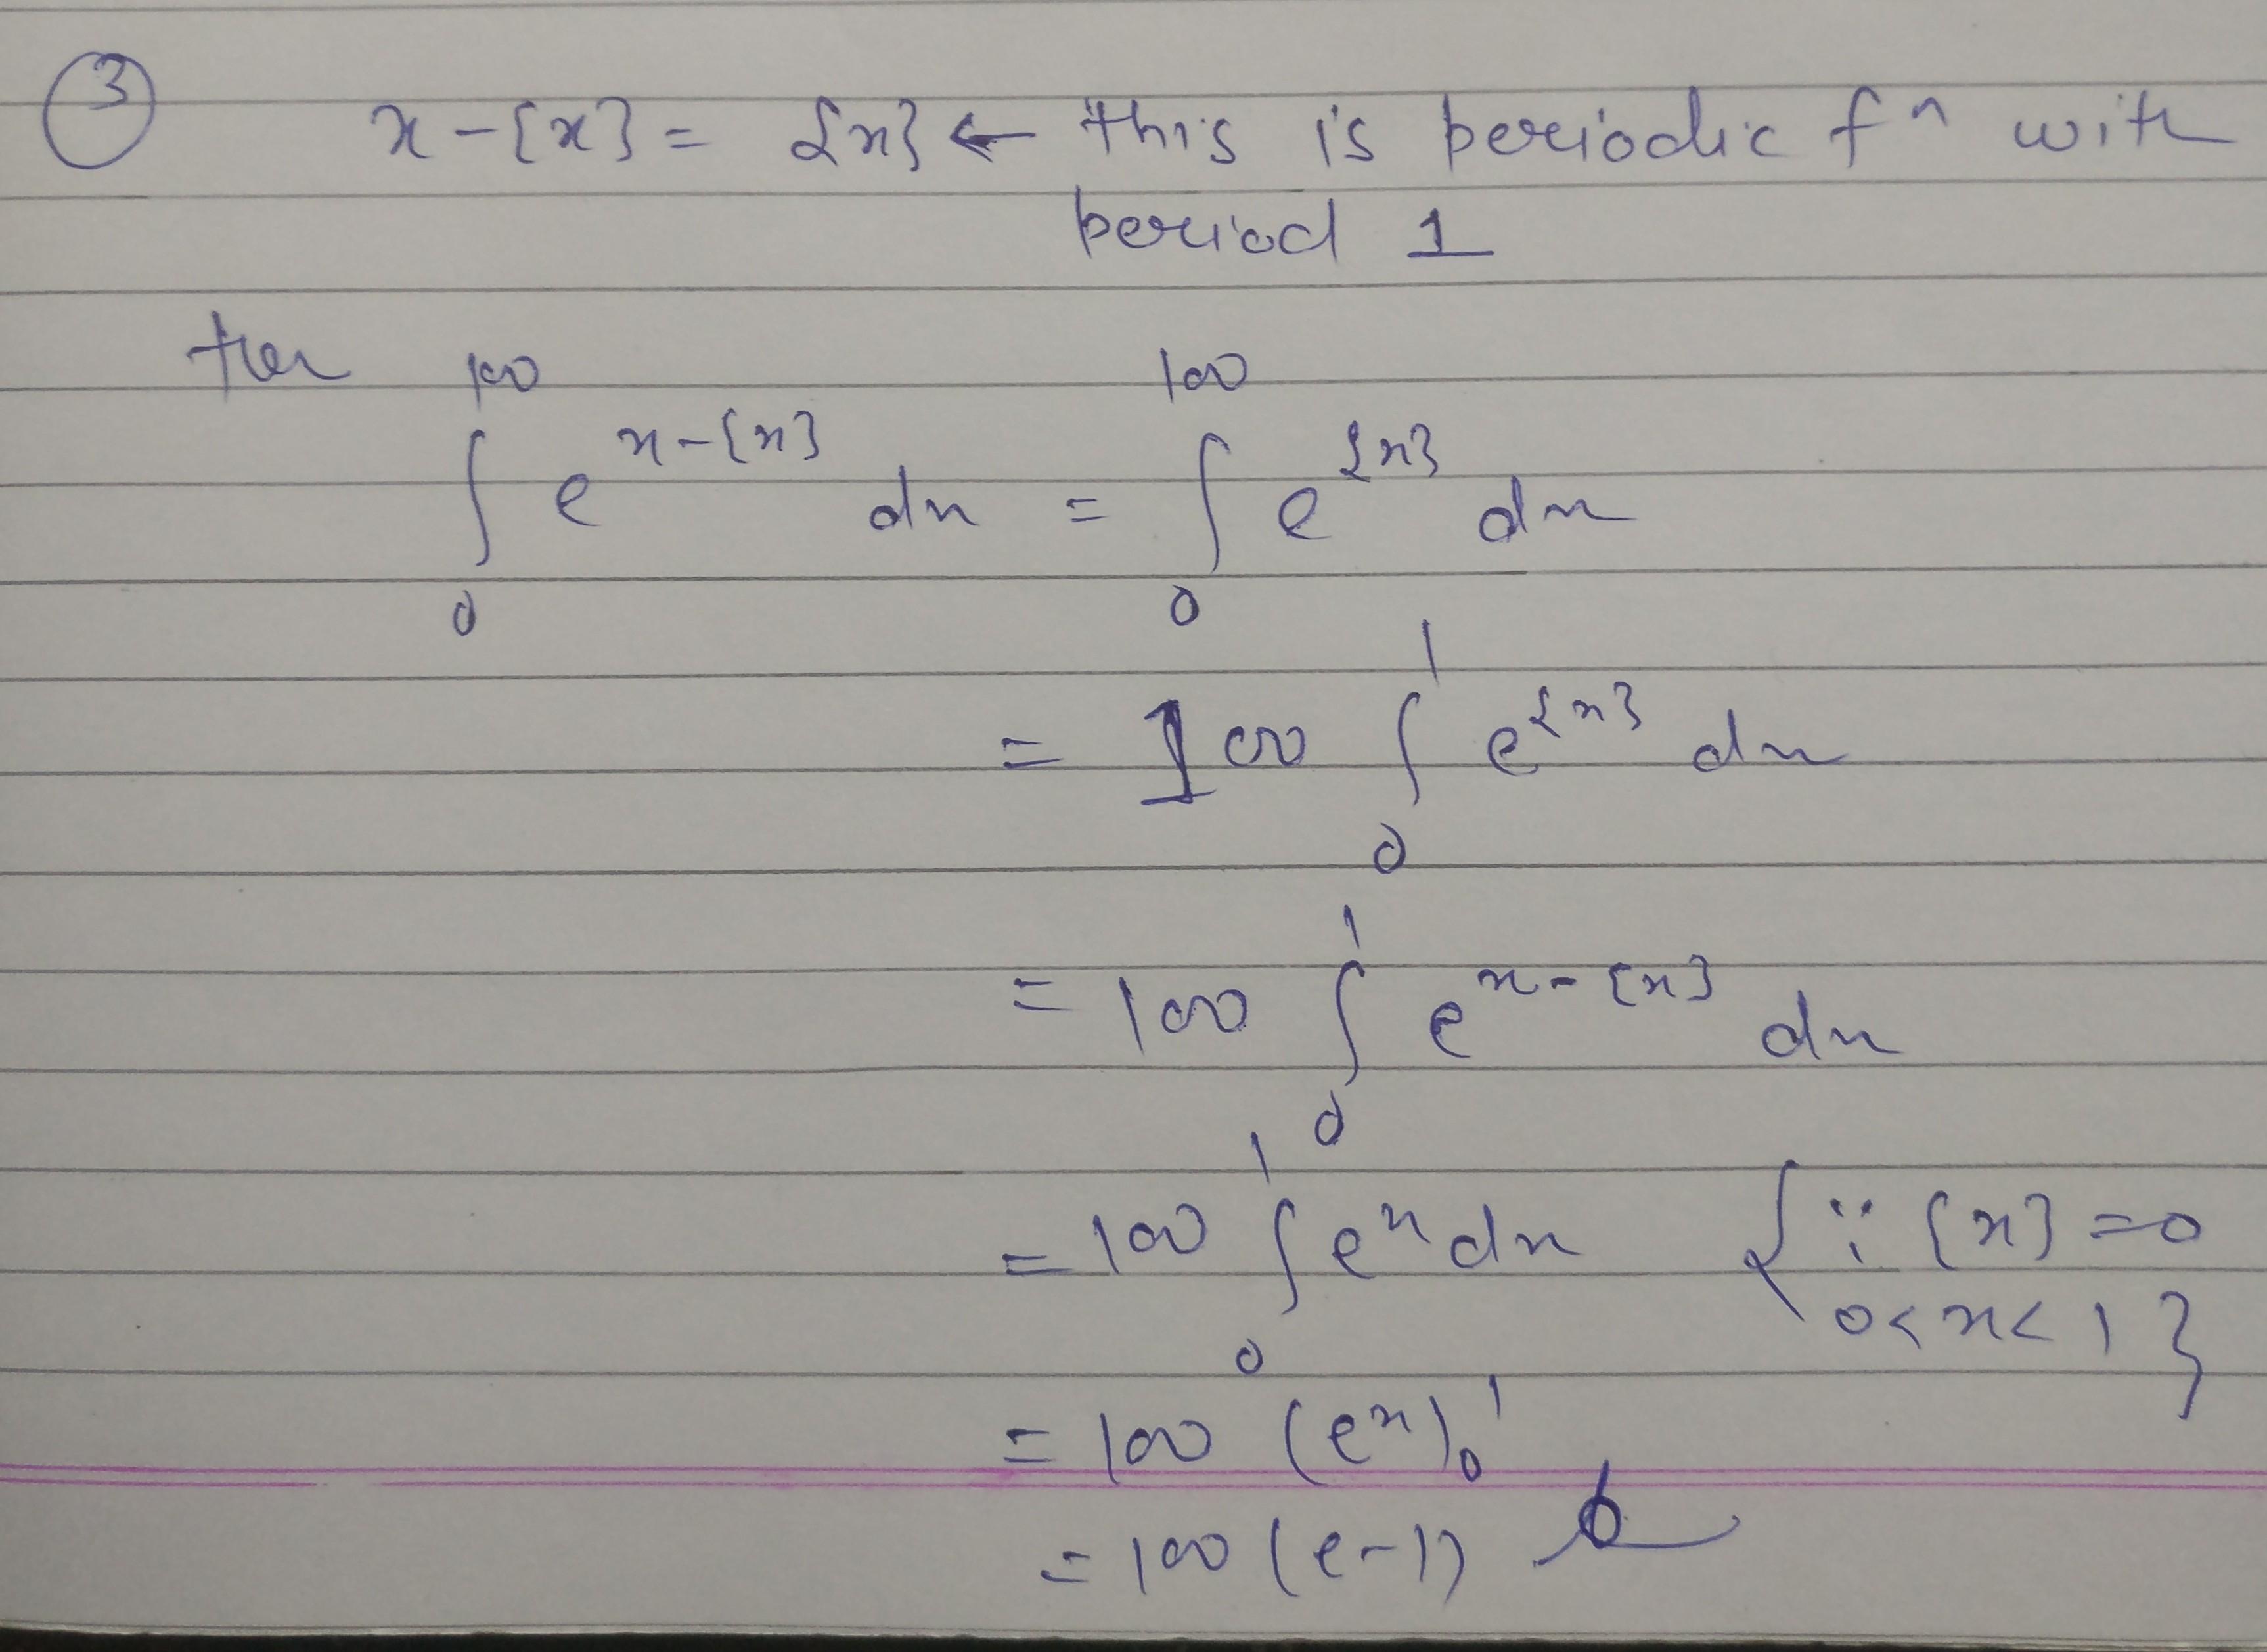 ③ x - [x] = {x} ← this is periodic fⁿ with
period 1
then ∫₀¹⁰⁰ e^(x-[x]) dx = ∫₀¹⁰⁰ e^{x} dx
= 100 ∫₀¹ e^{x} dx
= 100 ∫₀¹ e^(x-[x]) dx
= 100 ∫₀¹ eˣ dx { ∵ [x] = 0
0 < x < 1 }
= 100 (eˣ)₀¹
= 100 (e-1)